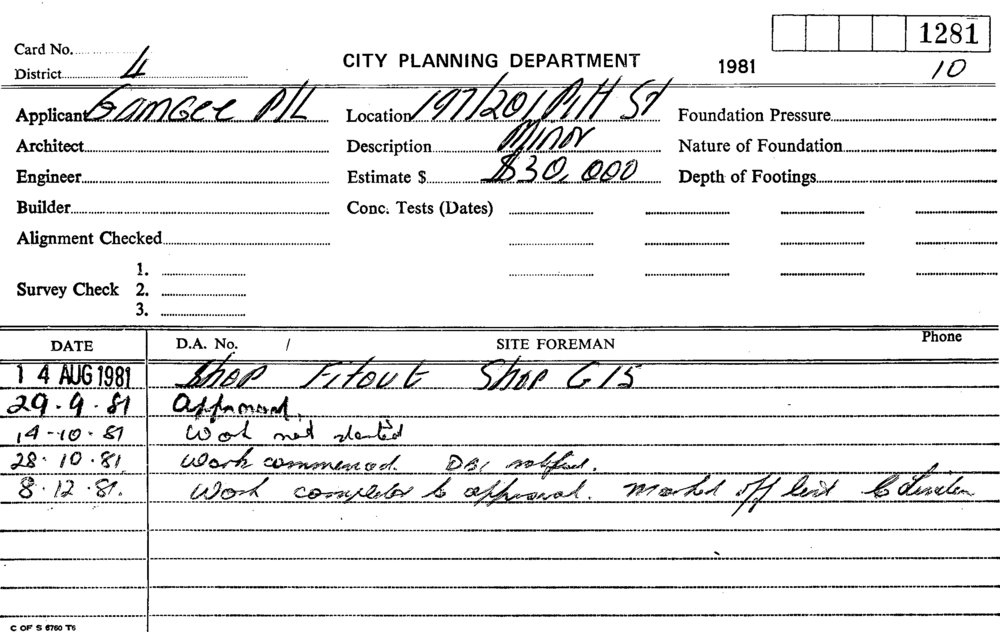 1281
Card No.
District 4
CITY PLANNING DEPARTMENT
1981
10
Applicant Gamgee P/L
Location 197/201 Pitt St
Foundation Pressure
Architect
Description Minor
Nature of Foundation
Engineer
Estimate $ $30,000
Depth of Footings
Builder
Conc. Tests (Dates)
Alignment Checked
Survey Check
1.
2.
3.
DATE D.A. No. / SITE FOREMAN Phone
14 AUG 1981 Shop Fitout Shop G15
29.9.81 Approved.
14-10-81 Work not started
28.10.81 Work commenced. DBI notified.
8.12.81. Work completed to approval. Marked off
C OF S 6760 T6